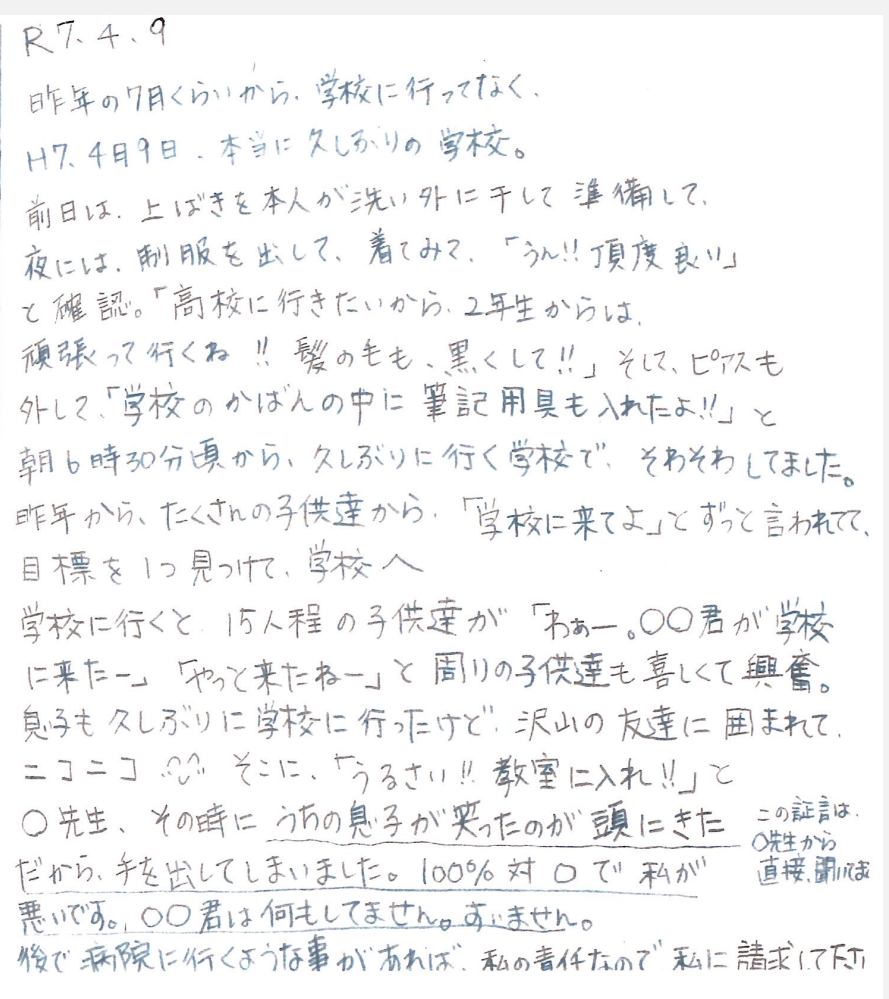 R7.4.9
昨年の7月くらいから、学校に行ってなく、
H7.4月9日、本当に久しぶりの学校。
前日は、上ばきを本人が洗い外に干して準備して、
夜には、制服を出して、着てみて、「うん!!頂度良い」
と確認。「高校に行きたいから、2年生からは、
頑張って行くね!!髪の毛も、黒くして!!」そして、ピアスも
外して、「学校のかばんの中に筆記用具も入れたよ!!」と
朝6時30分頃から、久しぶりに行く学校で、そわそわしてました。
昨年から、たくさんの子供達から、「学校に来てよ」とずっと言われてて、
目標を1つ見つけて、学校へ
学校に行くと、15人程の子供達が「わぁー。〇〇君が学校
に来たー」「やっと来たねー」と周りの子供達も喜しくて興奮。
息子も久しぶりに学校に行ったけど、沢山の友達に囲まれて、
ニコニコ そこに、「うるさい!!教室に入れ!!」と
〇先生、その時にうちの息子が笑ったのが頭にきた
だから、手を出してしまいました。100%対0で私が
悪いです。〇〇君は何もしてません。すいません。
後で病院に行くような事があれば、私の責任なので私に請求して下さい
この証言は、
〇先生から
直接、聞いてま